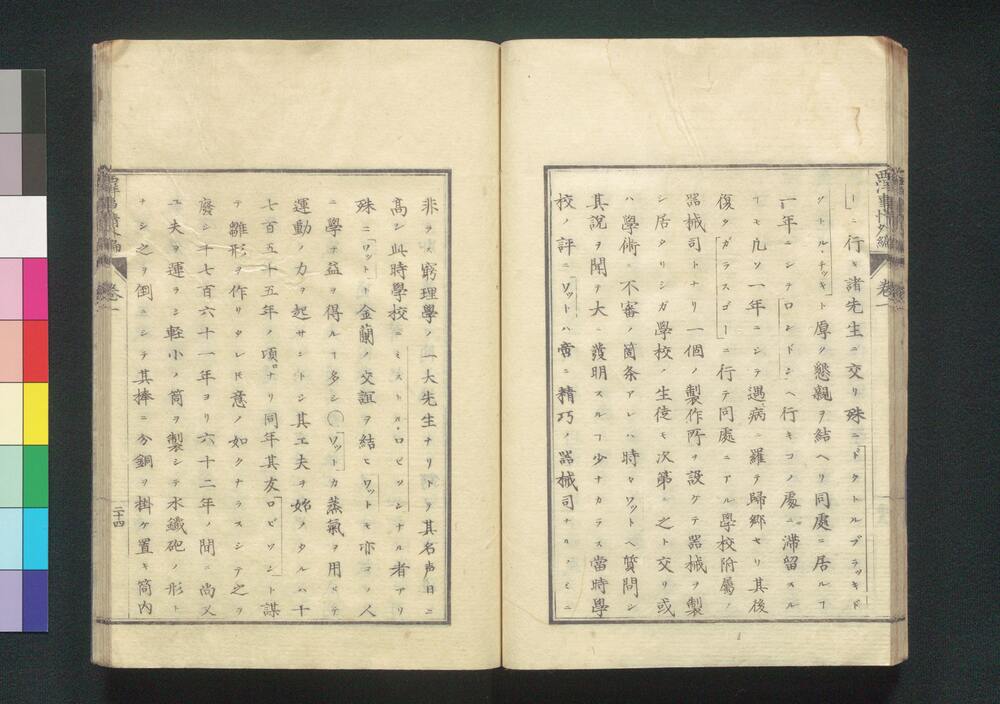 西洋事情外編
卷一
ーニ行キ諸先生ニ交リ殊ニ「ドクトルブラッキド
クトル・ヂッキト厚ク懇親ヲ結ヘリ同處ニ居ルヿ
一年ニシテ「ロンドン」ヘ行キコノ處ニ滞留スル
ヿモ凡ソ一年ニシテ遇病ニ羅テ歸郷セリ其後
復タ「ガラスゴー」ニ行テ同處ニアル學校附屬ノ
器械司トナリ一個ノ製作所ヲ設ケテ器械ヲ製
シ居タリシガ學校ノ生徒モ次第ニ之ト交リ或
ハ學術ニ不審ノ箇条アレハ時々ワットヘ質問シ
其説ヲ聞テ大ニ發明スルヿ少ナカラス當時學
校ノ評ニ「ワット」ハ啻ニ精巧ノ器械司ナルノミニ
非ラス窮理學ノ一大先生ナリトテ其名聲日ニ
高シ此時學校ニミストル・ロビソンナル者アリ
殊ニ「ワット」ト金蘭ノ交誼ヲ結ヒワットモ亦コノ人
ニ學テ益ヲ得ルヿ多シ〇「ワット」カ蒸氣ヲ用ヒテ
運動ノ力ヲ起サントシ其工夫ヲ始メタルハ千
七百五十五年ノ頃ナリ同年其友「ロビソン」ト謀
テ雛形ヲ作リタレ𪜈意ノ如クナラスシテ之ヲ
廢シ千七百六十一年ヨリ六十二年ノ間ニ尚又
工夫ヲ運ラシ軽小ノ筒ヲ製シテ水鐵砲ノ形ト
ナシ之ヲ倒ニシテ其捧ニ分銅ヲ掛ケ置キ筒内
卷一
二十四